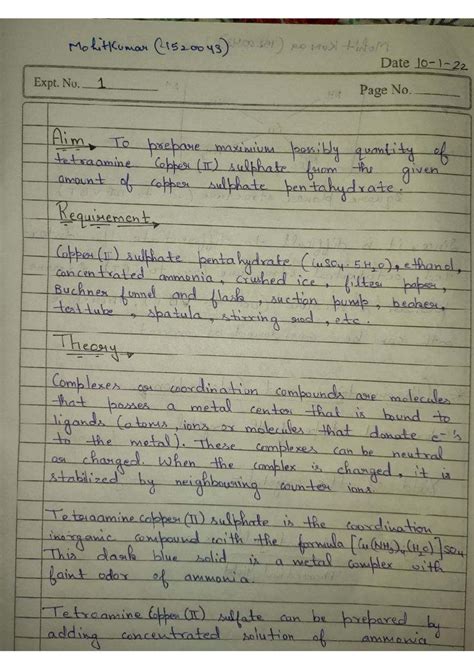 MohitKumar (1520043)
Date 10-1-22
Expt. No. 1
Page No.
Aim → To prepare maximium possibly quantity of
tetraamine copper (II) sulphate from the given
amount of copper sulphate pentahydrate.
Requirement →
Copper (II) sulphate pentahydrate (CuSO4·5H2O), ethanol,
concentrated ammonia, crushed ice, filter paper,
Buchner funnel and flask, suction pump, beaker,
test tube, spatula, stirring rod, etc.
Theory →
Complexes or coordination compounds are molecules
that posses a metal center that is bound to
ligands (atoms, ions or molecules that donate e-'s
to the metal). These complexes can be neutral
or charged. When the complex is charged, it is
stabilized by neighbouring counter ions.
Tetraaminecopper (II) sulphate is the coordination
inorganic compound with the formula [Cu(NH3)4(H2O)]SO4
This dark blue solid is a metal complex with
faint odor of ammonia.
Tetreamine Copper (II) sulfate can be prepared by
adding concentrated solution of ammonia